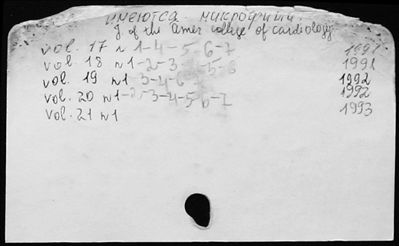 имеются микрофиши
J of the Amer college of cardiology
vol. 17 n 1-4-5-6-7 1991
vol. 18 n1-2-3-4-5-6 1991
vol. 19 n1 3-4-6 1992
vol. 20 n1-2-3-4-5-6-7 1992
vol. 21 n1 1993